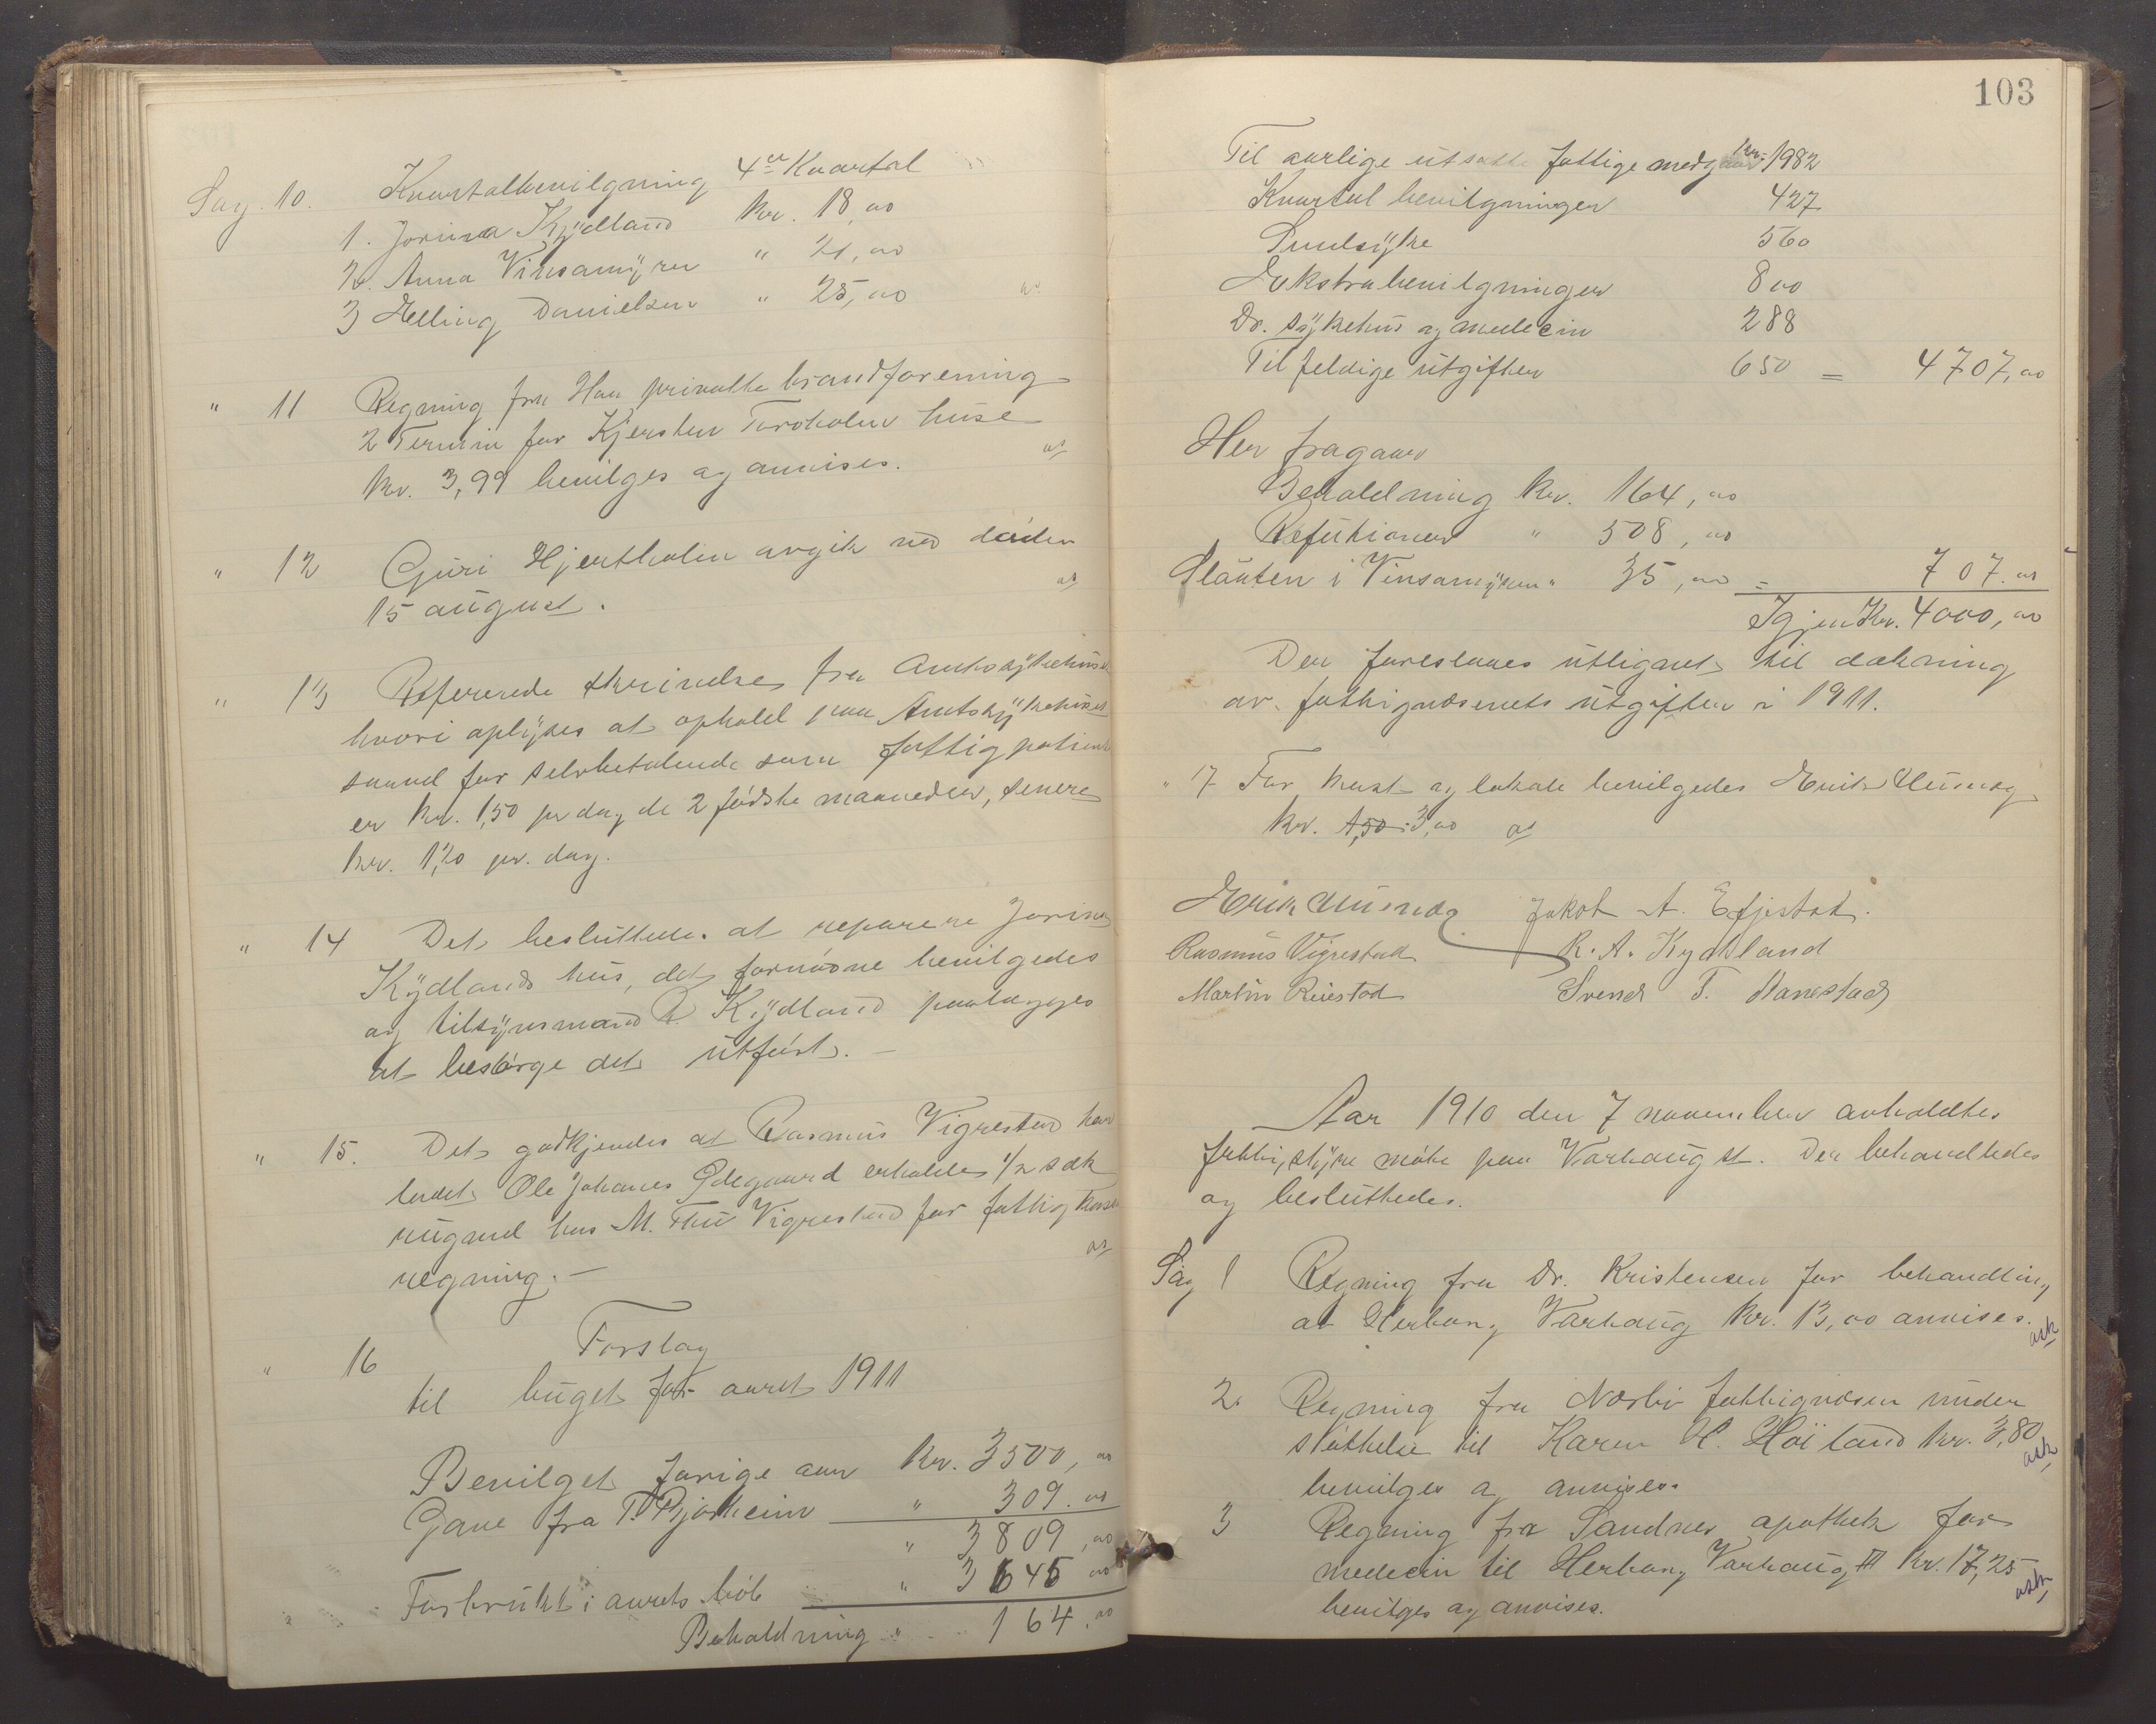 Sag. 10. Kvartalbevilgning 4de Kvartal
1. Jorina Kÿdland kr. 18,00
2. Anna Vinsamÿren " 21,00
3 Elling Danielsen " 25,00
" 11 Regning fra Haa private brandforening
2 Termin for Kjersten Torholen huse
kr. 3,99 bevilges og anvises.
" 12 Guri Hjertholen avgik ved døden
15 august.
" 13 Refererede skrivelse fra Amtssÿkehuset
hvori oplÿses at ophold paa Amtssÿkehuset
saavel for selvbetalende som fattigpatient
er kr. 1,50 pr dag de 2 første maaneder, senere
kr. 1,20 pr. dag.
" 14 Det besluttedes at reparere Jorina
Kÿdlands hus, det fornødne bevilgedes
og tilsÿnsmand R. Kÿdland paalægges
at besørge det utført. –
" 15. Det godkjendes at Rasmus Vigrestad har
ladet Ole Johanes Ødegaard erholde 1/2 sæk
rugmel hos M. Thu Vigrestad for fattigkassens
regning. –
" 16 Forslag
til buget for aaret 1911
Bevilget forige aar kr. 3500,00
Gave fra T. Bjorheim " 309.00
" 3809,00
Forbrukt i aarets løb " 3645 00
Beholdning " 164,00
103
Til aarlige utsatte fattige medgaar kr. 1982
Kvartal bevilgninger 427
Sindsÿke 560
Ekstrabevilgninger 800
Dr. sÿkehus og medecin 288
Tilfeldige utgifter 650 = 4707,00
Her fragaar
Beholdning kr. 164,00
Refutioner " 508,00
Slaatten i Vinsamÿren " 35,00 = 707.00
Igjen kr. 4000,00
Der foreslaaes utlignet til dækning
av fattigvæsenets utgifter i 1911.
" 17 For kost og lokale bevilgedes Erik Ueland
kr. 1,50 3,00
Rasmus Vigrestad R. A. Kydland
Martin Reiestad Svend T. Hanestad
Aar 1910 den 7 november avholdtes
fattigstÿre møte paa Varhaug st. Der behandledes
og besluttedes.
Sag 1 Regning fra Dr. Kristensen for behandling
av Herborg Varhaug kr. 13,00 anvises.
2. Regning fra Nærbø fattigvæsen under
støttelse til Karen H. Høiland kr. 3,80
bevilges og anvises.
3 Regning fra Sandnes apothek for
medecin til Herborg Varhaug kr. 17,25
bevilges og anvises.